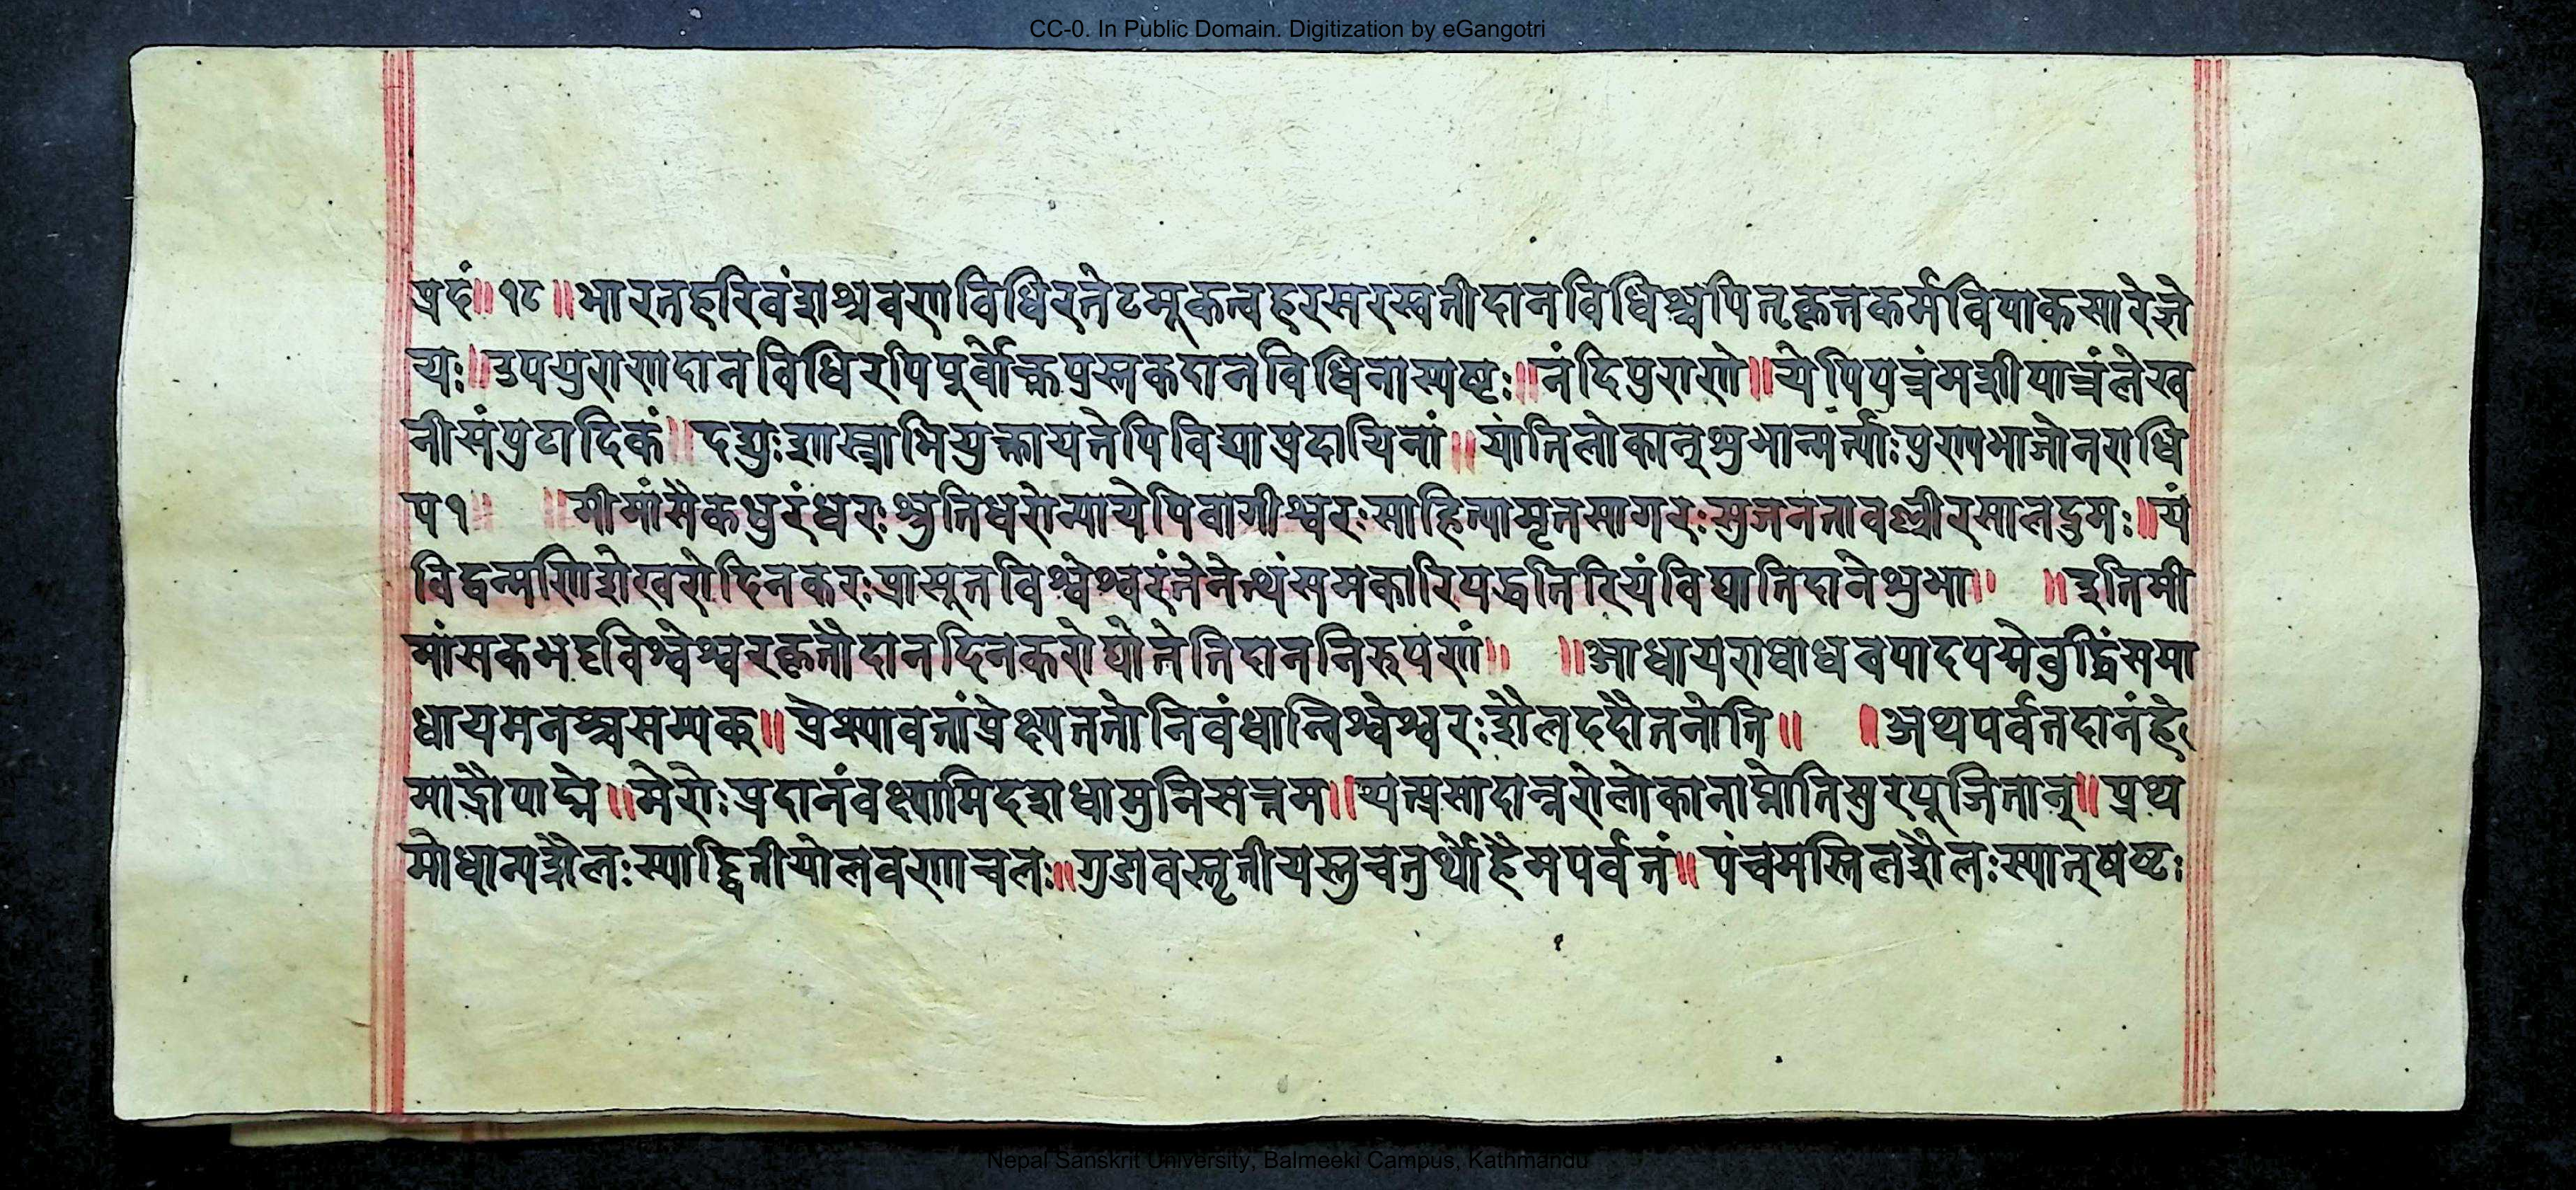 CC-0. In Public Domain. Digitization by eGangotri
प्रदं॥१८॥भारतहरिवंशश्रवणविधिरत्नेटमूकत्वहरसरस्वतीदानविधिश्चपितृकृतकर्मविपाकसारेज्ञे
यः॥उपपुराणदानविधिरपिपूर्वोक्तपुस्तकदानविधिनास्पष्टः॥नंदिपुराणे॥येपिपत्रंमशीपात्रंलेख
नीसंपुटादिकं॥दद्युःशास्त्राभियुक्तायतेपिविद्याप्रदायिनां॥यांतिलोकान्शुभान्मर्त्याःपुण्यभाजोनराधि
प१॥ ॥मीमांसैकधुरंधरःश्रुतिधरोन्यायेपिवागीश्वरःसाहित्यामृतसागरःसुजनतावल्लीरसालद्रुमः॥यं
विद्वन्मणिशेखरोदिनकरःप्रासूतविश्वेश्वरंतेनेत्थंसमकारिपद्धतिरियंविद्यातिदानेशुभा॥ ॥इतिमी
मांसकभट्टविश्वेश्वरकृतौदानदिनकरोद्योतेतिदाननिरुपणं॥ ॥आधायराधाधवपादपद्मेबुद्धिंसमा
धायमनश्चसम्यक्॥प्रेक्ष्यावतांप्रेक्ष्यततोनिवंधान्विश्वेश्वरःशैलददौतनोति॥ ॥अथपर्वतदानंहे
माद्रौपाद्मे॥मेरोःप्रदानंवक्ष्यामिदशधामुनिसत्तम॥यत्प्रसादान्नरोलोकानाप्नोतिसुरपूजितान्॥प्रथ
मोधान्यशैलःस्याद्द्वितीयोलवणाचलः॥गुडावस्तृतीयस्तुचतुर्थोहैमपर्वतं॥पंचमस्तिलशैलःस्यात्षष्टः
Nepal Sanskrit University, Balmeeki Campus, Kathmandu